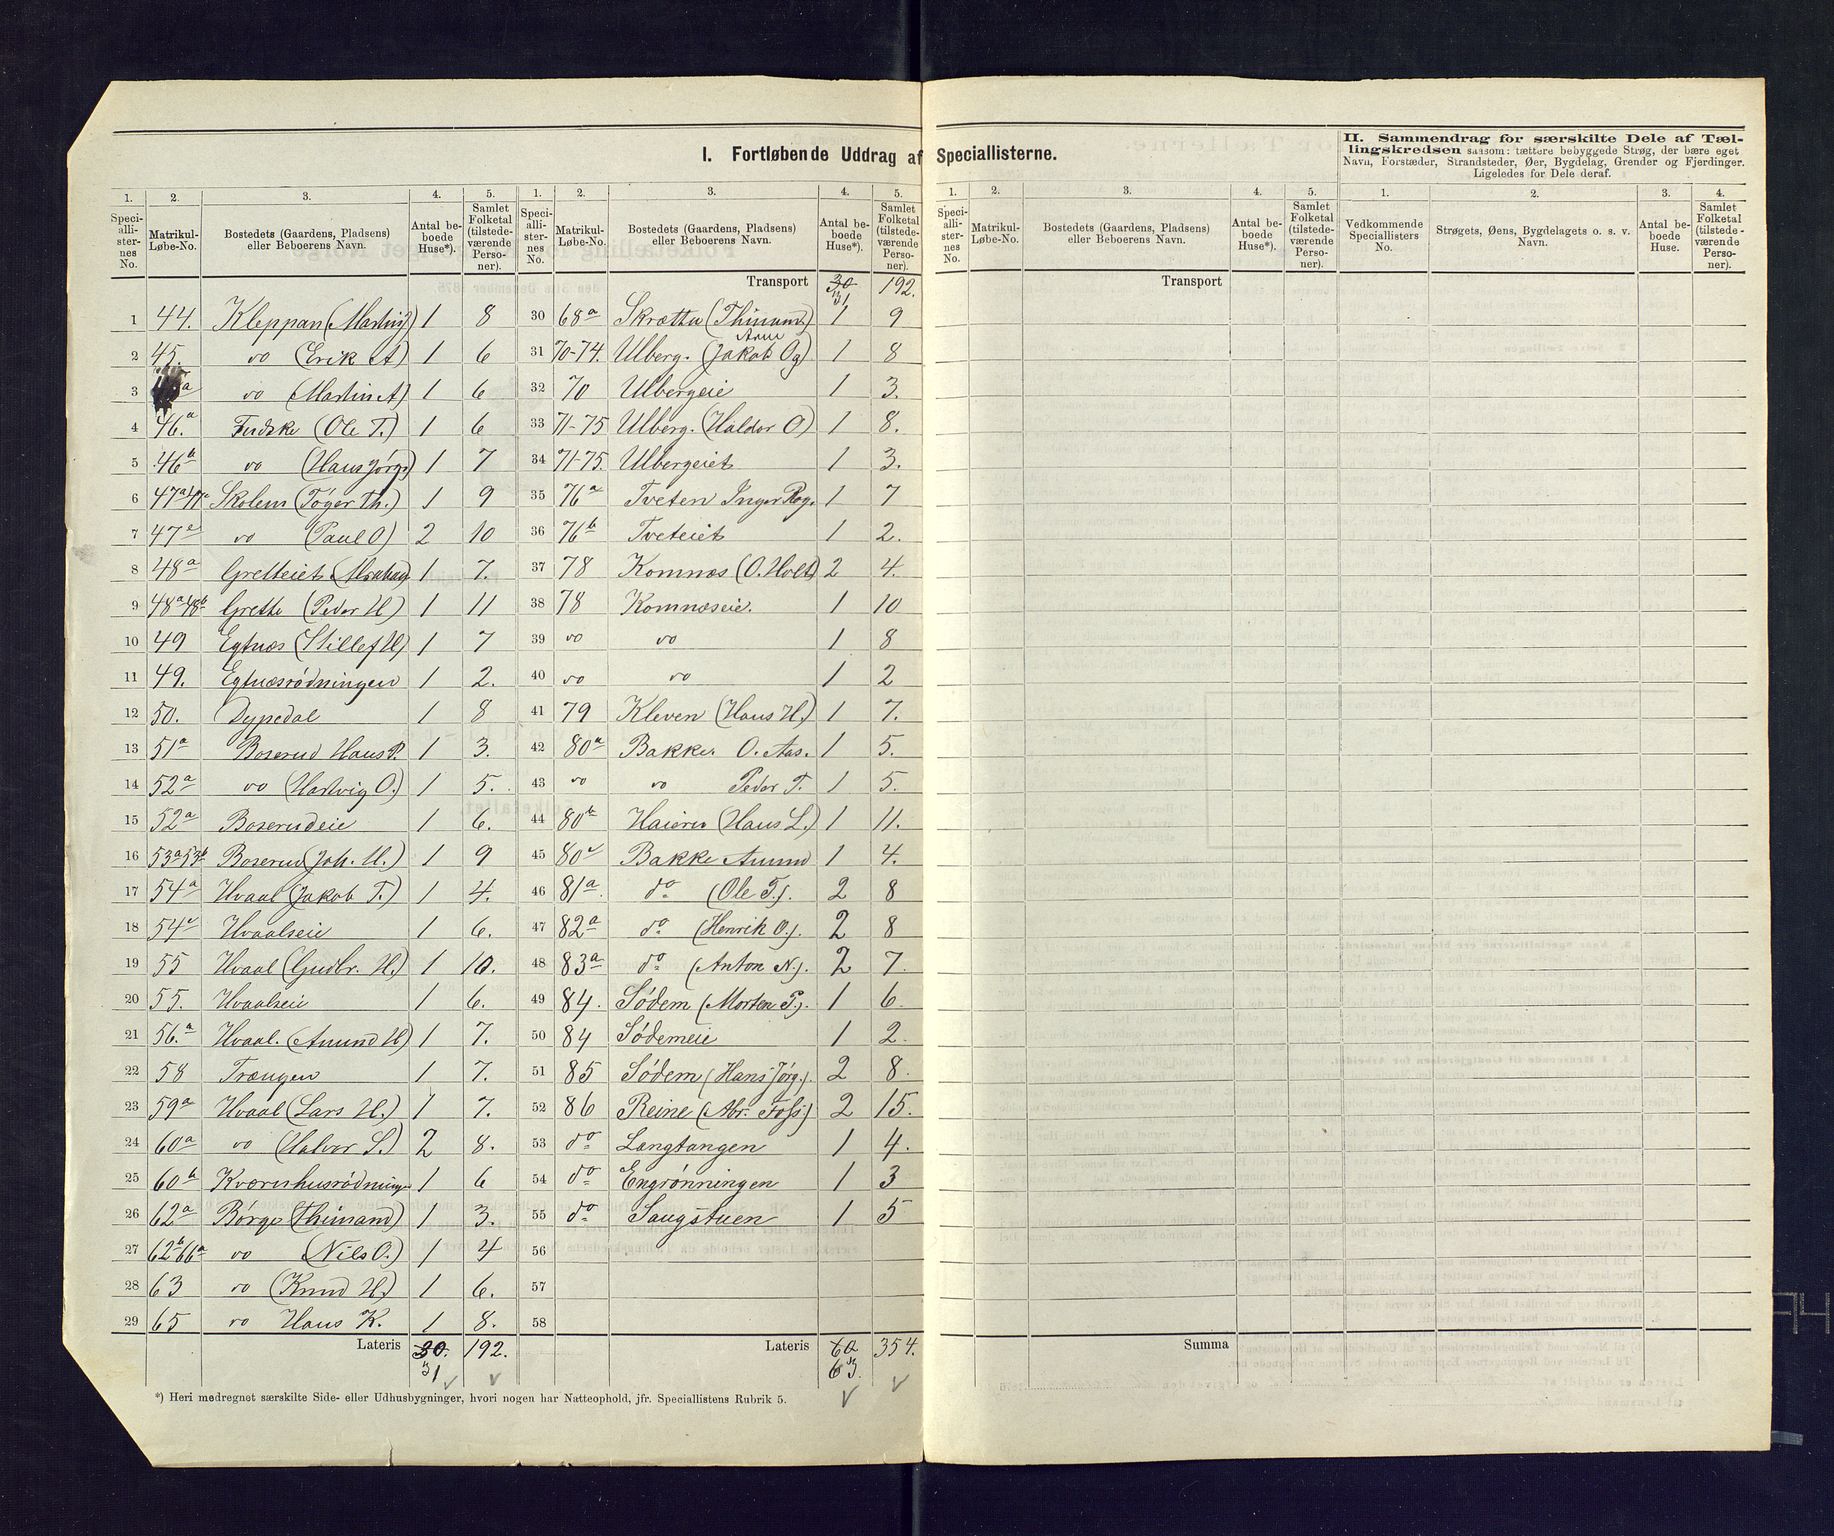 I. Fortløbende Uddrag af Speciallisterne.
II. Sammendrag for særskilte Dele af Tæl-
lingskredsen saasom: tættere bebyggede Strøg, der bære eget
Navn, Forstæder, Strandsteder, Øer, Bygdelag, Grender og Fjerdinger.
Ligeledes for Dele deraf.
1. 2. 3. 4. 5. 1. 2. 3. 4. 5.
Speciallisternes No. Matrikul-Løbe-No. Bostedets (Gaardens, Pladsens) eller Beboerens Navn. Antal beboede Huse*). Samlet Folketal (tilstedeværende Personer).
Speciallisternes No. Matrikul-Løbe-No. Bostedets (Gaardens, Pladsens) eller Beboerens Navn. Antal beboede Huse*). Samlet Folketal (tilstedeværende Personer).
Transport 30 31 192.
1 44. Kleppan (Martin) 1 8
2 45. do (Erik A) 1 6
3 do (Martin A) 1 6
4 46a. (Ole T.) 1 6
5 46b do (Hans Jørg) 1 7
6 47a Skolem (Tøger Th.) 1 9
7 47c do (Paul O) 2 10
8 48a Gretteiet 1 7.
9 48a 48b Grette (Peder H) 1 11
10 49 Egtnæs (Stillef H) 1 7
11 49. Egtnæsrødningen 1 2.
12 50. Dypedal 1 8
13 51a Boserud Hans P. 1 3.
14 52a do (Hartvig O.) 1 5.
15 52a Boserudeie 1 6.
16 53a 53b Boserud (Joh. H.) 1 9
17 54a Hvaal (Jakob T.) 1 4.
18 54c Hvaalseie 1 6.
19 55 Hvaal (Gudbr. H.) 1 10.
20 55. Hvaalseie 1 6.
21 56a Hvaal. (Amund H) 1 7.
22 58 Trængen 1 7.
23 59a Hvaal (Lars H.) 1 7.
24 60a do (Halvor S.) 2 8.
25 60b Kværnhusrødninge 1 6
26 62a Børge (Thimand) 1 3.
27 62b 66a do (Nils O.) 1 4
28 63 do (Knud H.) 1 6.
29 65 do Hans K. 1 8.
Lateris 30. 31 192.
30 68a Skrætta (Thimand.) 1 9
31 70-74. Ulberg. (Jakob Og) Arne 1 8
32 70 Ulbergeie 1 3.
33 71-75 Ulberg. (Haldor O) 1 8.
34 71-75. Ulbergeiet 1 3.
35 76a Tveten Inger Rog. 1 7
36 76b Tveteiet 1 2.
37 78 Komnæs (O. Holt) 2 4.
38 78 Komnæseie. 1 10
39 do do 1 8
40 do do 1 2
41 79 Kleven (Hans H.) 1 7.
42 80a Bakke. O. Aas. 1 5.
43 do do Peder T. 1 5.
44 80b Haieren (Hans L.) 1 11.
45 80c Bakke Amund 1 4.
46 81a. do (Ole T.). 2 8
47 82a do (Henrik O.). 2 8
48 83a do (Anton N.). 2 7.
49 84. Sødem (Morten P.). 1 6.
50 84 Sødemeie 1 2.
51 85 Sødem (Hans Jørg.). 2 8.
52 86 Reine (Abr. Foss) 2 15.
53 do Langtangen 1 4.
54 do Engrønningen 1 3
55 do Saugstuen 1 5
56
57
58
Lateris 60 63. 354.
*) Heri medregnet særskilte Side- eller Udhusbygninger, hvori nogen har Natteophold, jfr. Speciallistens Rubrik 5.
1. 2. 3. 4. 5. 1. 2. 3. 4.
Speciallisternes No. Matrikul-Løbe-No. Bostedets (Gaardens, Pladsens) eller Beboerens Navn. Antal beboede Huse*). Samlet Folketal (tilstedeværende Personer).
Vedkommende Speciallisters No. Strøgets, Øens, Bygdelagets o. s. v. Navn. Antal beboede Huse. Samlet Folketal (tilstedeværende Personer).
Transport
Summa